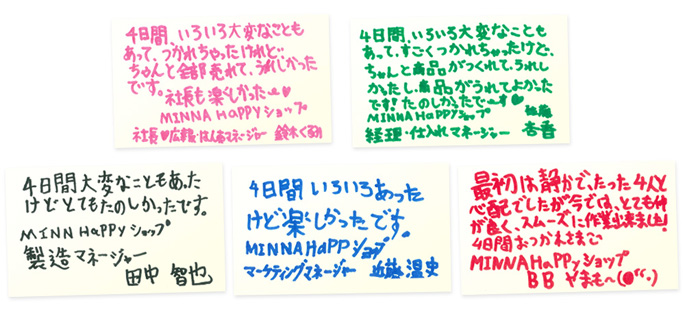 4日間、いろいろ大変なことも
あって、つかれちゃったけれど…
ちゃんと全部売れて、うれしかった
です。
社長も楽しかった〜♥
MINNA HaPPY ショップ
社長♥広報・はんばいマネージャー 鈴木くるみ
4日間、いろいろ大変なことも
あって、すごくつかれちゃったけど、
ちゃんと商品がつくれて、うれし
かったし、商品がうれてよかった
です!たのしかったで〜す♥
MINNA HaPPY ショップ
経理・仕入れマネージャー 杏香
4日間大変なこともあった
けどとてもたのしかったです。
MINN HaPPY ショップ
製造マネージャー
田中 智也
4日間 いろいろあった
けど楽しかったです。
MINNA HaPP ショップ
マーケティングマネージャー 近藤 温史
最初は静かで、たった4人と
心配でしたが今では、とても仲
が良く、スムーズに作業出来ました!
4日間おつかれさまで
MINNA HaPPY ショップ
BB やまも〜